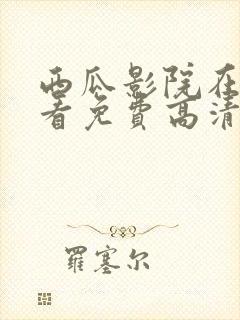 西瓜影院在
看免费高清
羅塞尔